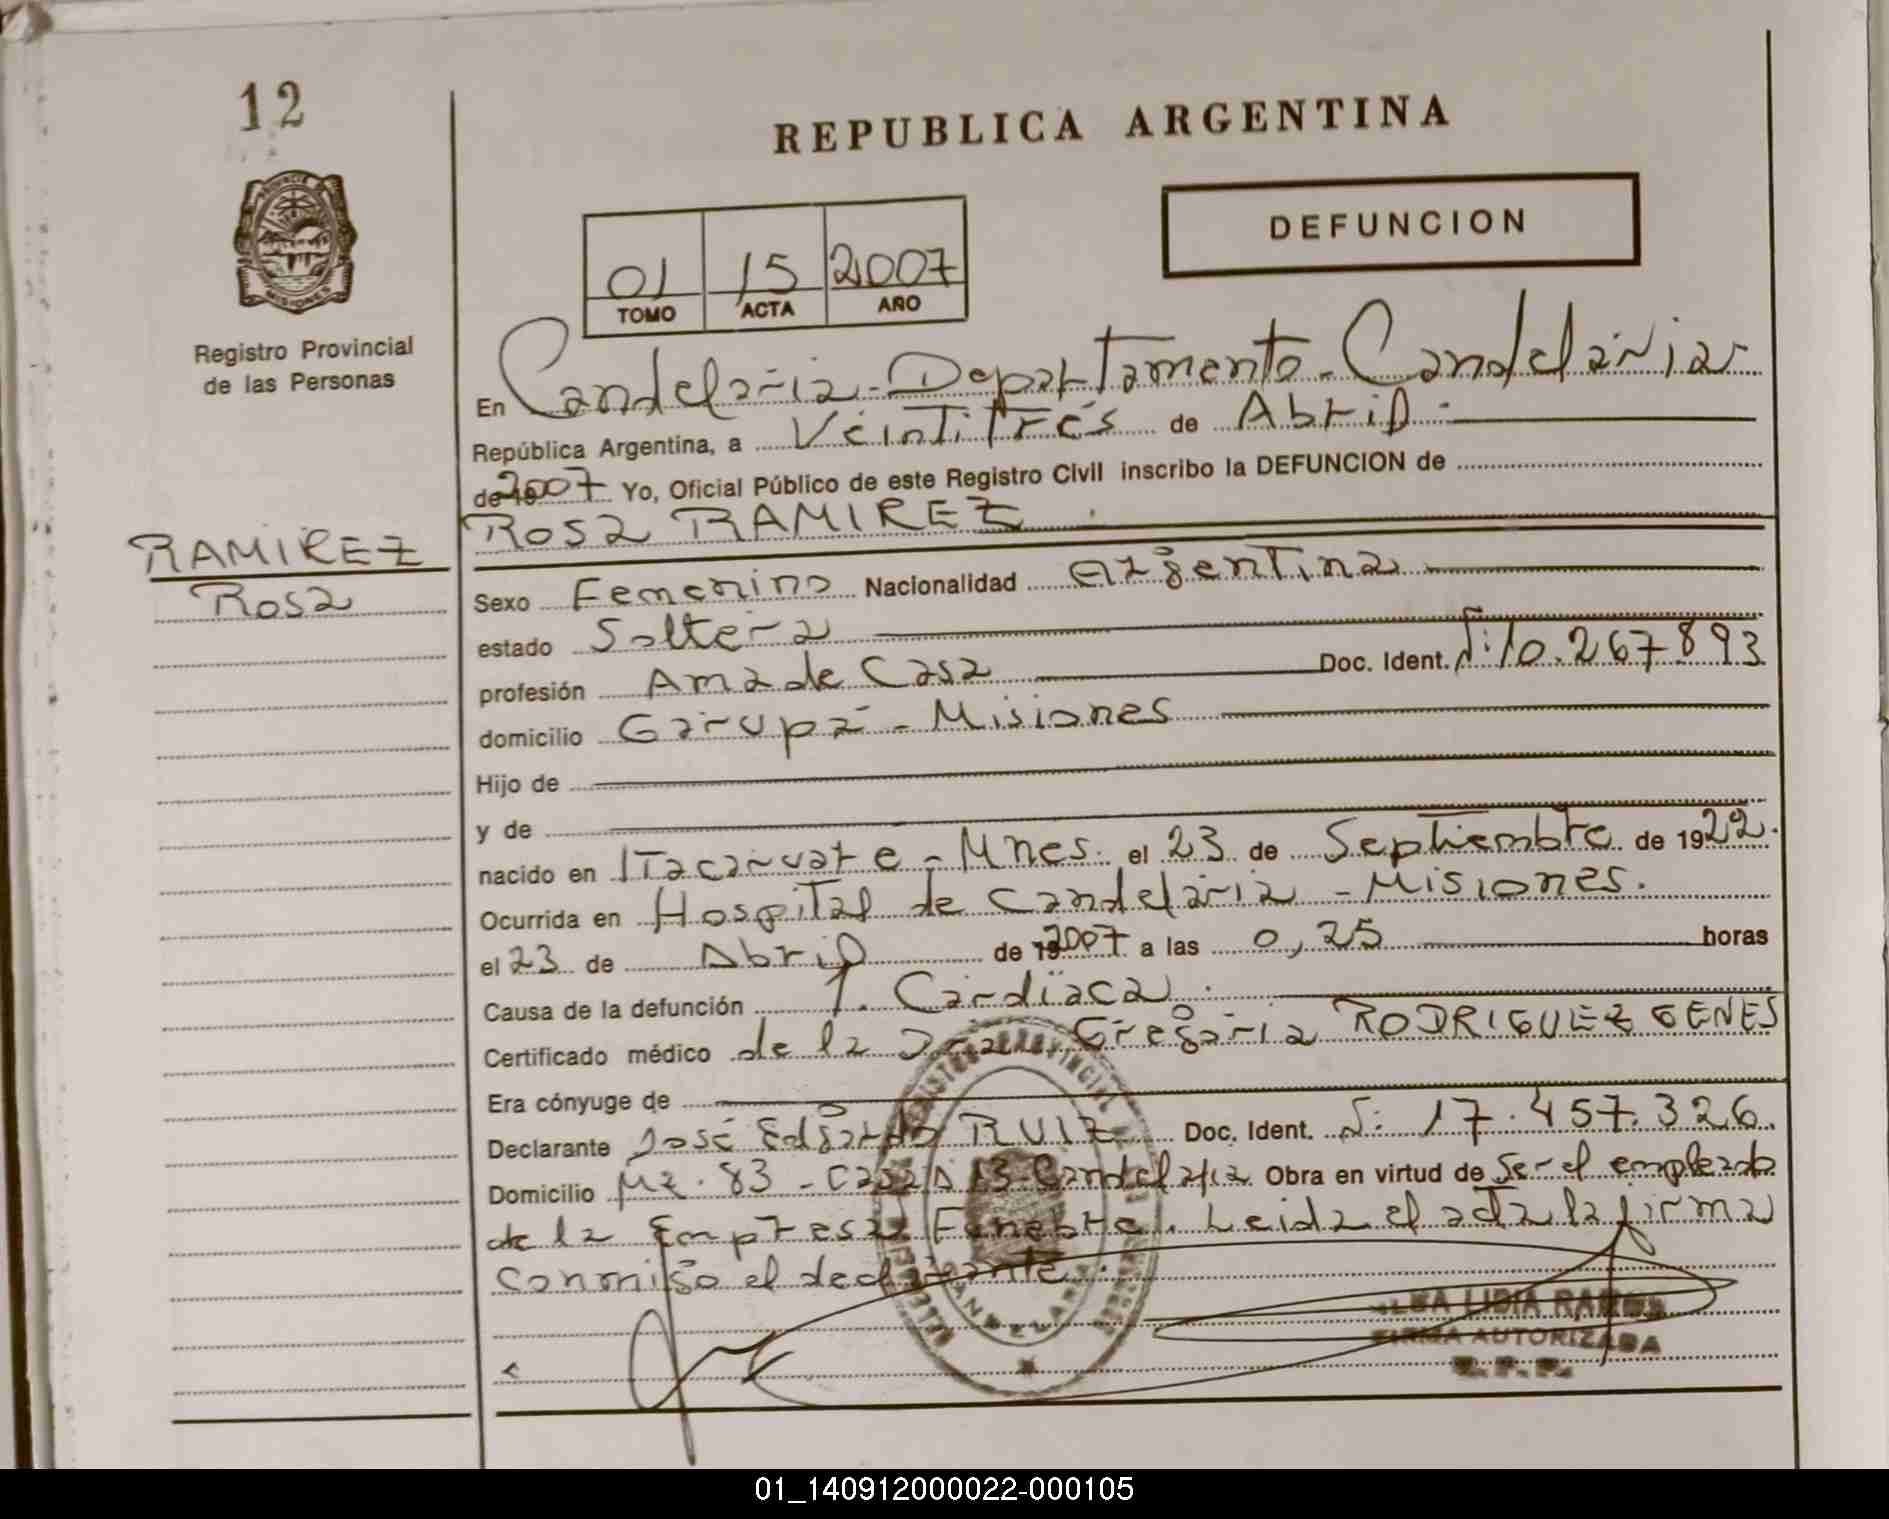 12
REPUBLICA ARGENTINA
DEFUNCION
01 15 2007
TOMO ACTA AÑO
PROVINCIA DE
MISIONES
Registro Provincial
de las Personas
En Candelaria - Departamento - Candelaria
República Argentina, a Veintitrés de Abril.
de 19 2007 Yo, Oficial Público de este Registro Civil inscribo la DEFUNCION de
RAMIREZ
Rosa
Rosa RAMIREZ
Sexo Femenino Nacionalidad Argentina
estado Soltera
profesión Ama de Casa Doc. Ident. N: 10.267.893
domicilio Garupá - Misiones
Hijo de
y de
nacido en Itacaruare - Mnes. el 23 de Septiembre de 1922.
Ocurrida en Hospital de Candelaria - Misiones.
el 23 de Abril de 19 2007 a las 0,25 horas
Causa de la defunción I. Cardíaca.
Certificado médico de la Dra. Gregoria RODRIGUEZ GENES
Era cónyuge de
Declarante José Edgardo RUIZ Doc. Ident. N: 17.457.326.
Domicilio Mz. 83 - Casa 13 - Candelaria Obra en virtud de Ser el empleado
de la Empresa Fúnebre. Leida el acta la firma
conmigo el declarante.
LIDIA RAMOS
FIRMA AUTORIZADA
R. P. P.
01_140912000022-000105